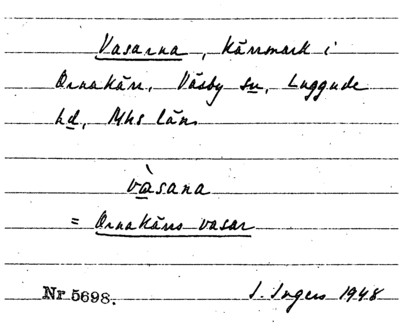 Vasarna, kärrmark i
Ornakärr, Väsby sn, Luggude
hd, Mhs län
vàsana
= Ornakärrs vasar
Nr 5698. I. Ingers 1948